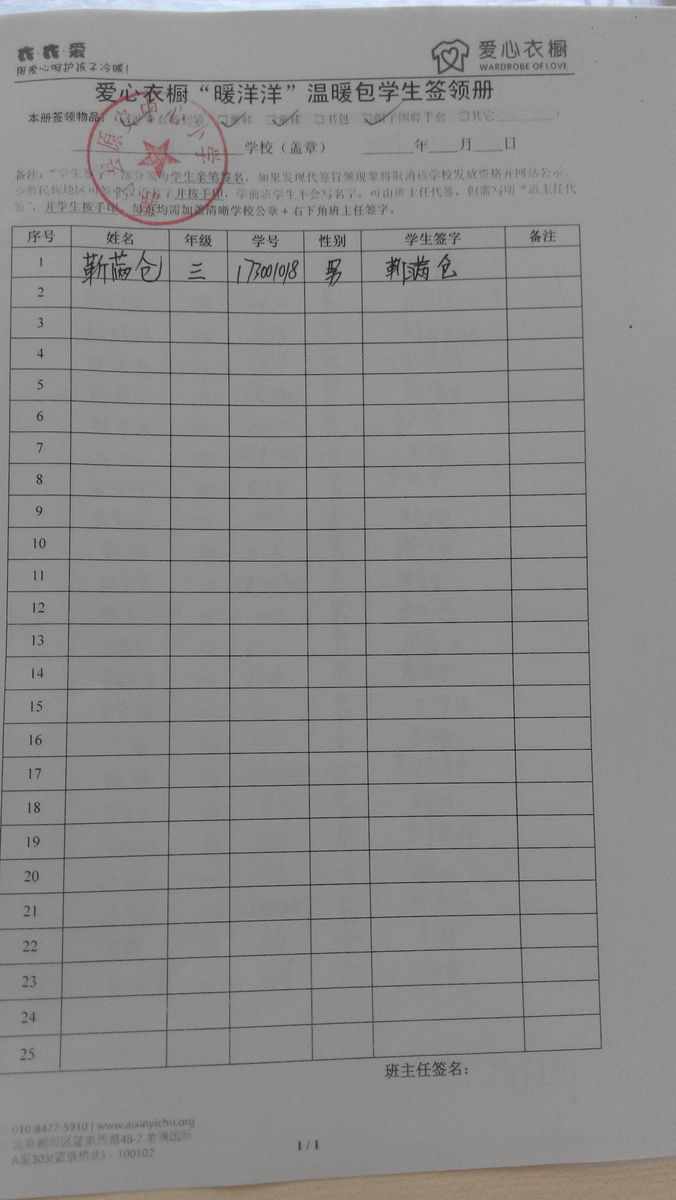 衣衣爱
用爱心呵护孩子冷暖！
爱心衣橱
WARDROBE OF LOVE
爱心衣橱“暖洋洋”温暖包学生签领册
本册签领物品： □书包 □帽子围脖手套 □其它
学校（盖章） 年 月 日
备注：“学生 部分须为学生亲笔签名，如果发现代签冒领现象将取消该学校发放资格并网站公示。
少数民族地区可 名字并按手印，学前班学生不会写名字，可由班主任代签，但需写明“班主任代
签”，并学生按手印。每页均需加盖清晰学校公章+右下角班主任签字。
序号 姓名 年级 学号 性别 学生签字 备注
1 靳 仓 三 173001018 男 靳满仓
2
3
4
5
6
7
8
9
10
11
12
13
14
15
16
17
18
19
20
21
22
23
24
25
班主任签名：
010-8477-5910 | www.aixinyichu.org
北京朝阳区望京西路48-2 金隅国际
A座303(望京桥北) 100102
1 / 1